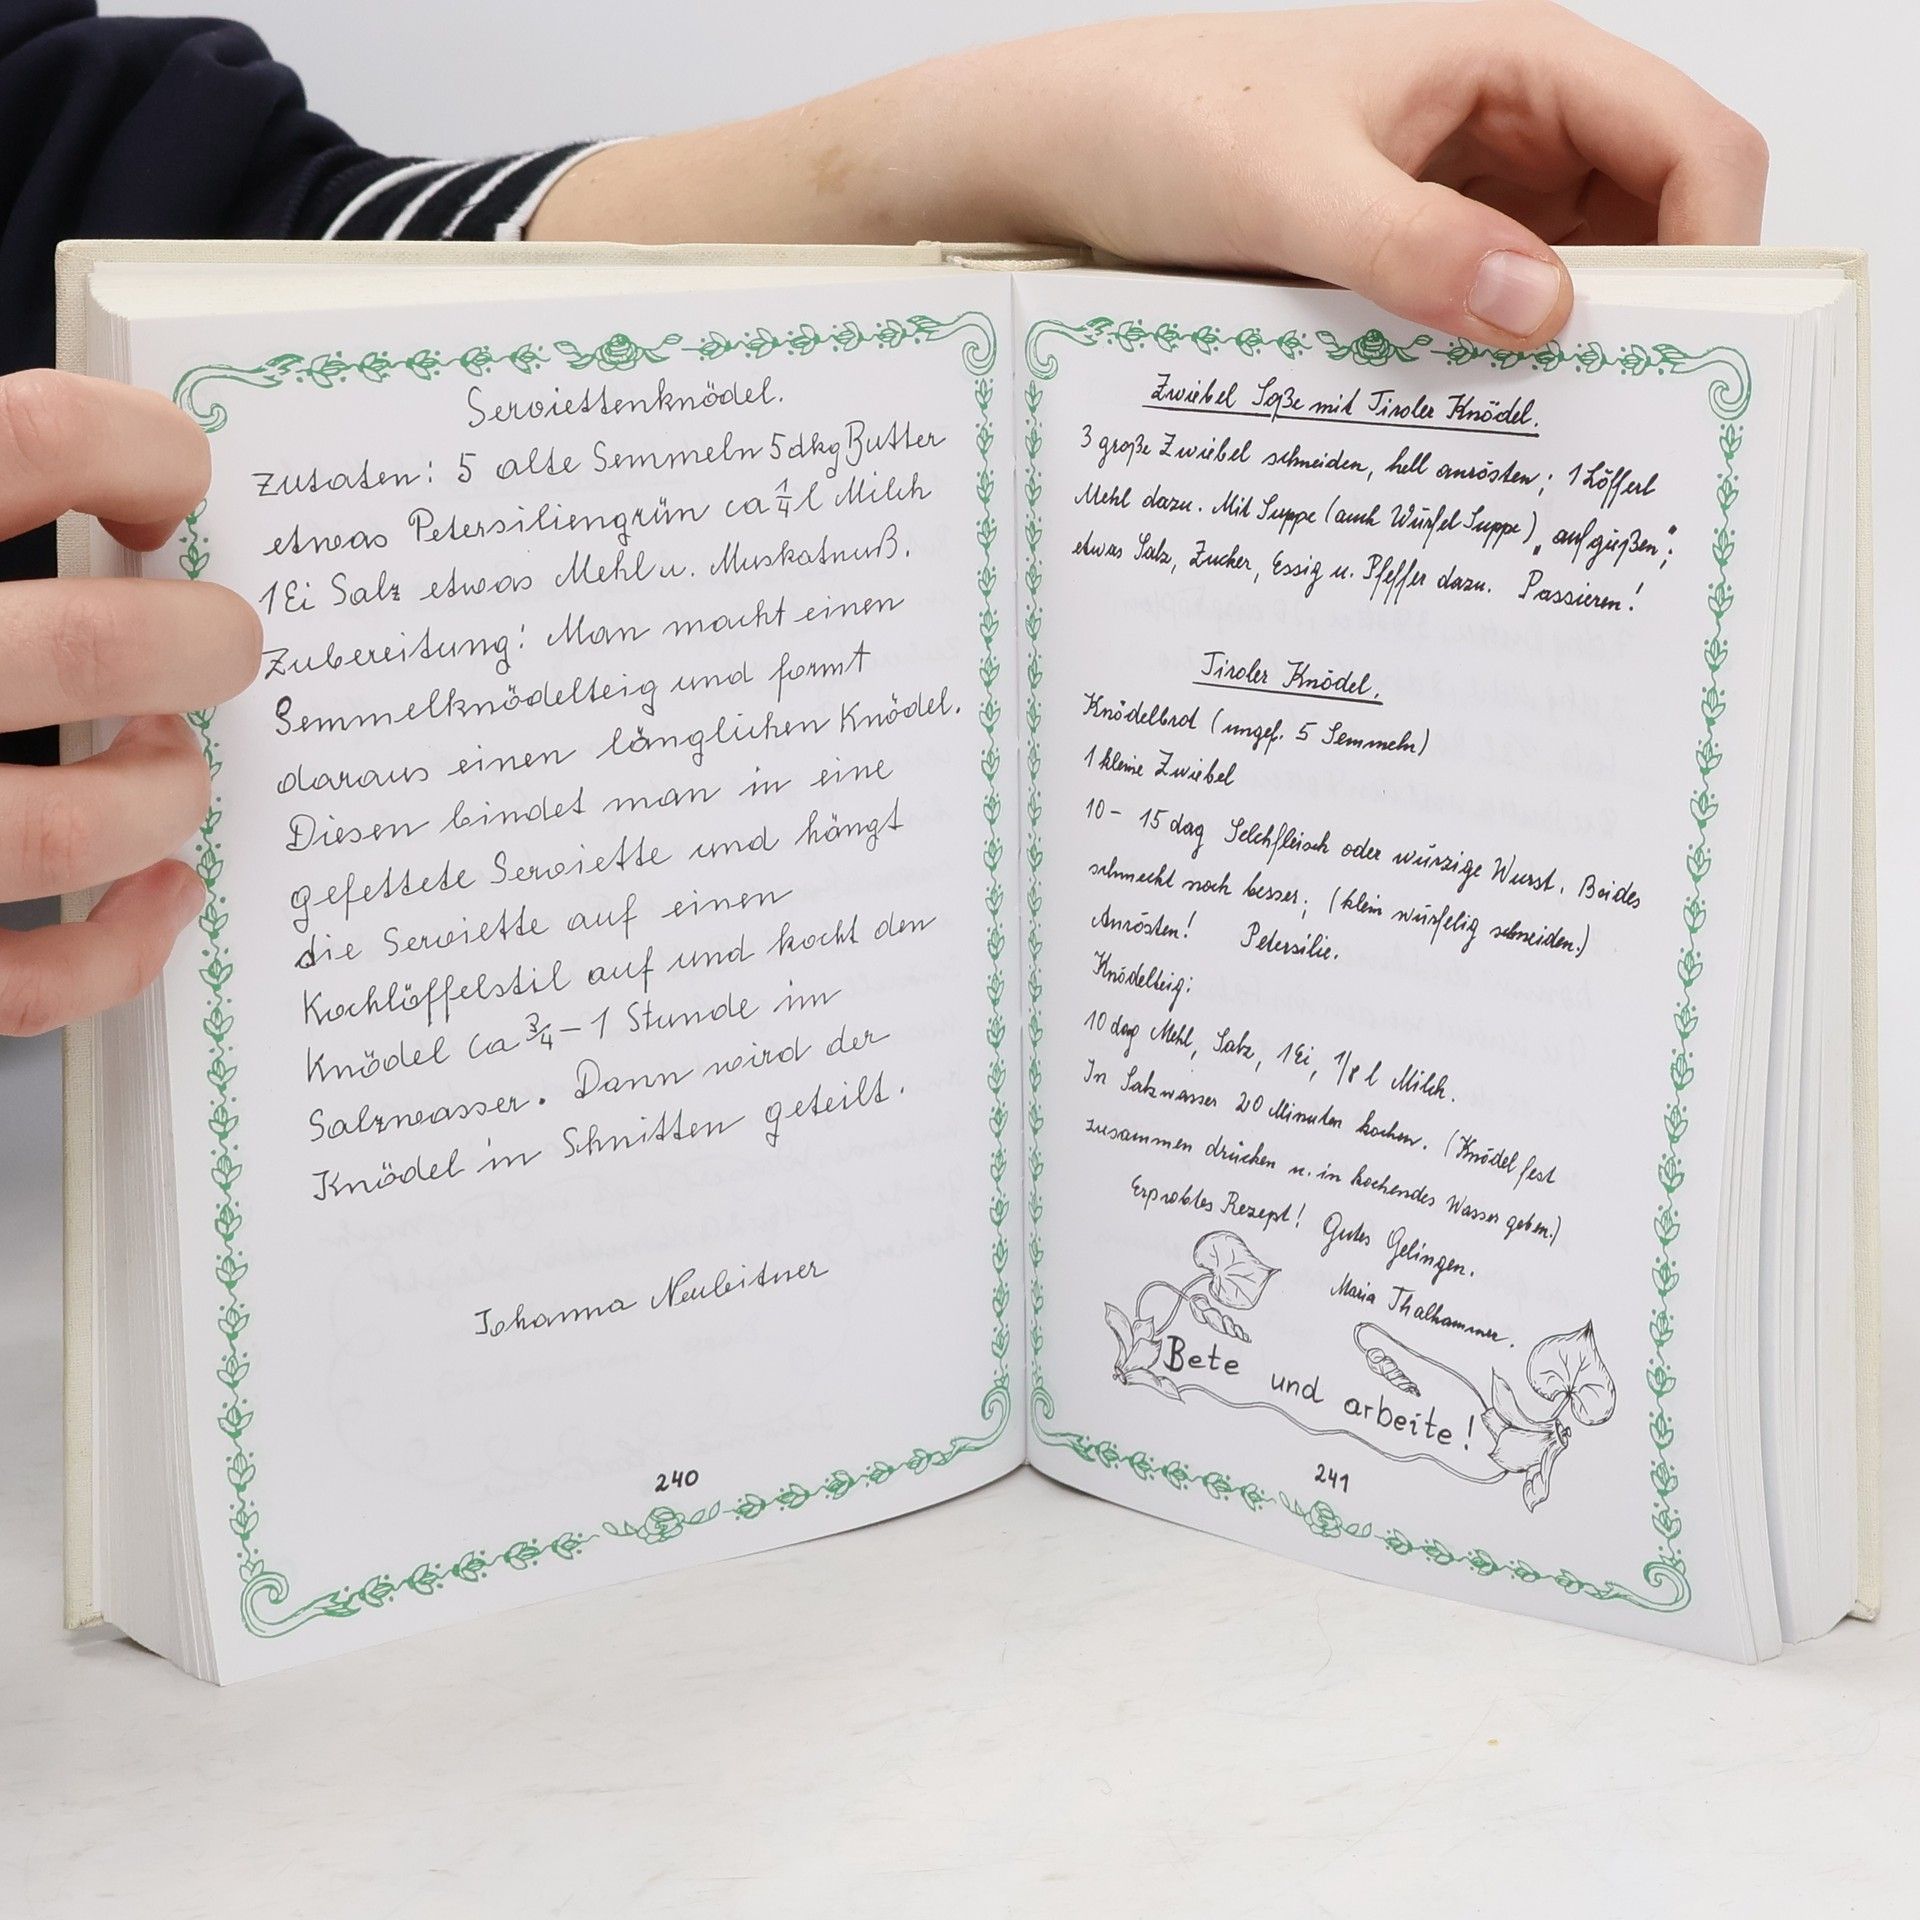 Serviettenknödel.
Zutaten: 5 alte Semmeln 5dkg Butter
etwas Petersiliengrün ca 1/4 l Milch
1 Ei Salz etwas Mehl u. Muskatnuß.
Zubereitung: Man macht einen
Semmelknödelteig und formt
daraus einen länglichen Knödel.
Diesen bindet man in eine
gefettete Serviette und hängt
die Serviette auf einen
Kochlöffelstil auf und kocht den
Knödel ca 3/4 – 1 Stunde im
Salzwasser. Dann wird der
Knödel in Schnitten geteilt.
Johanna Neuleitner
240
Zwiebel Soße mit Tiroler Knödel.
3 große Zwiebel schneiden, hell anrösten; 1 Löfferl
Mehl dazu. Mit Suppe (auch Würfel Suppe) „aufgießen";
etwas Salz, Zucker, Essig u. Pfeffer dazu. Passieren!
Tiroler Knödel.
Knödelbrot (ungef. 5 Semmeln)
1 kleine Zwiebel
10 – 15 dag Selchfleisch oder würzige Wurst. Beides
schmeckt noch besser; (klein würfelig schneiden.)
Anrösten! Petersilie.
Knödelteig:
10 dag Mehl, Salz, 1 Ei, 1/8 l Milch.
In Salzwasser 20 Minuten kochen. (Knödel fest
zusammen drücken u. in kochendes Wasser geben.)
Erprobtes Rezept! Gutes Gelingen.
Maria Thalhammer.
Bete und arbeite!
241